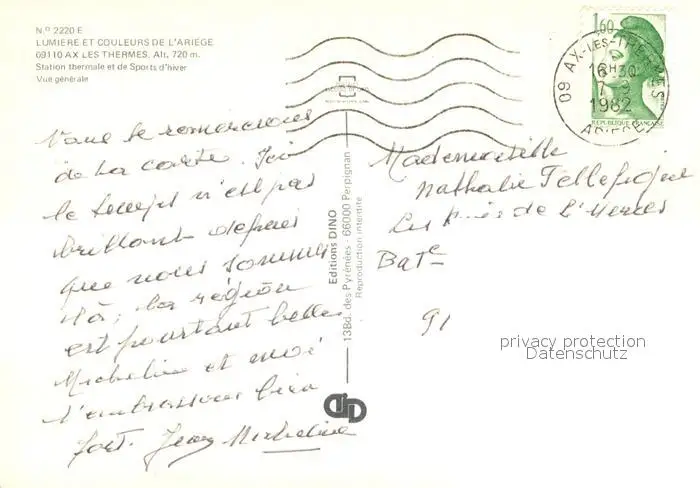 N.º 2220 E
LUMIERE ET COULEURS DE L'ARIÈGE
09110 AX LES THERMES. Alt. 720 m.
Station thermale et de Sports d'hiver
Vue générale
Nous te remercions
de ta carte. Ici
le temps n'est pas
brillant depuis
que nous sommes
là; la région
est pourtant belle
Micheline et moi
t'embrassons bien
fort. Jean Micheline
Editions DINO
13Bd. des Pyrénées - 66000 Perpignan
Reproduction interdite
1,60
RÉPUBLIQUE FRANÇAISE
09 AX-LES-THERMES
16H30
7
1982
ARIEGE
Mademoiselle
Nathalie
Les de l'
Bat C
91
privacy protection
Datenschutz